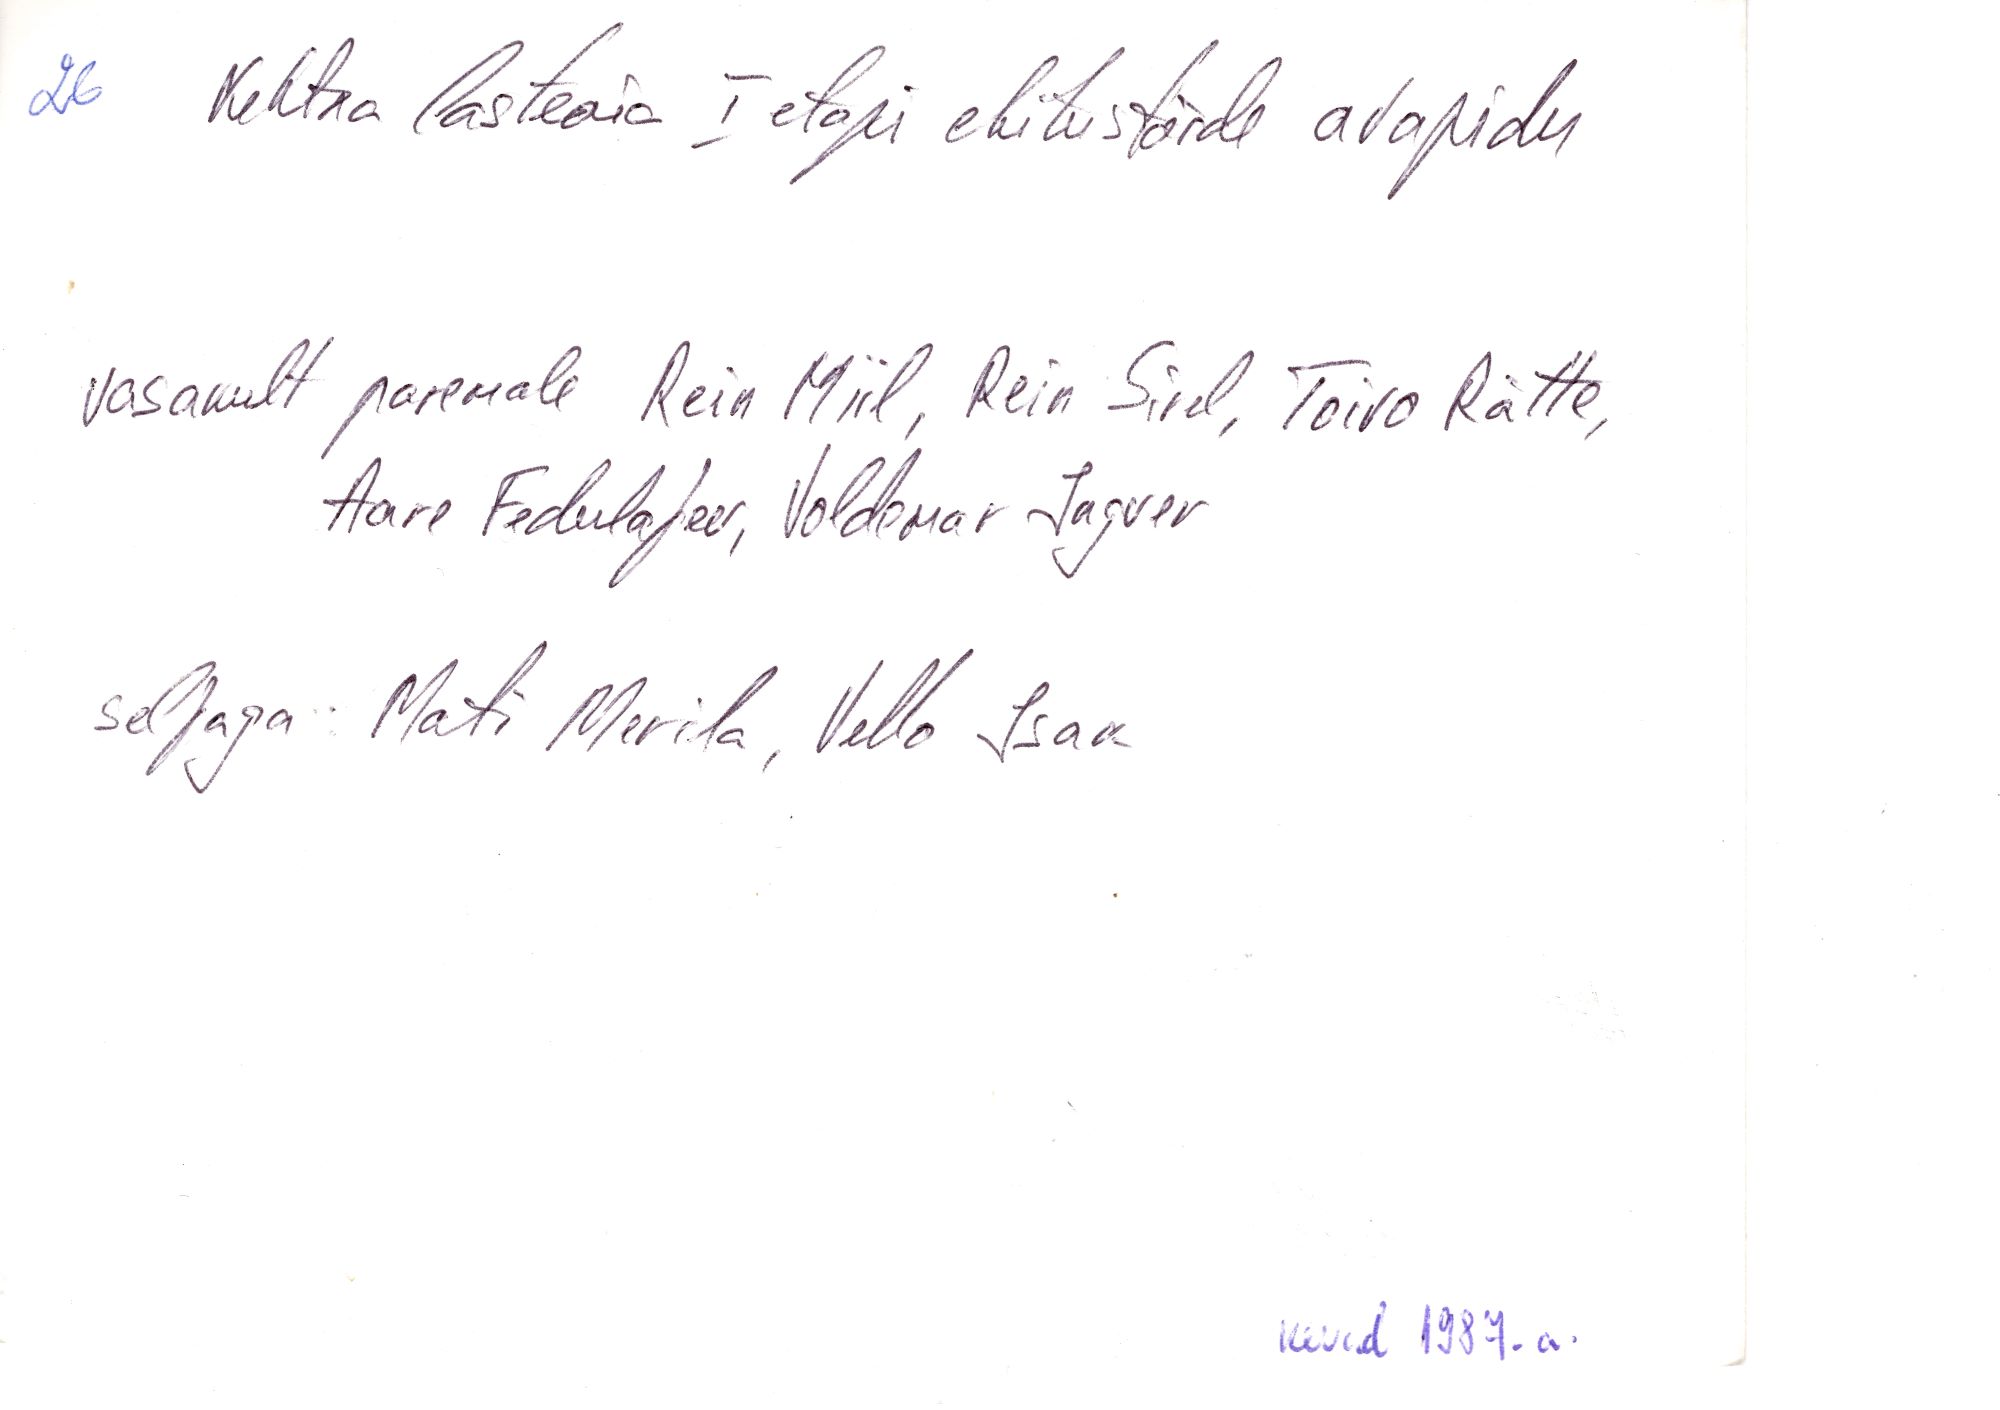 26 Kehtna lasteaia I etapi ehitustööde avapidu
vasakult paremale Rein Miil, Rein Sirel, Toivo Rätte,
Aare Fedulajeer, Voldemar Ingver
seljaga: Mati Merila, Vello Isak
kevad 1987. a.